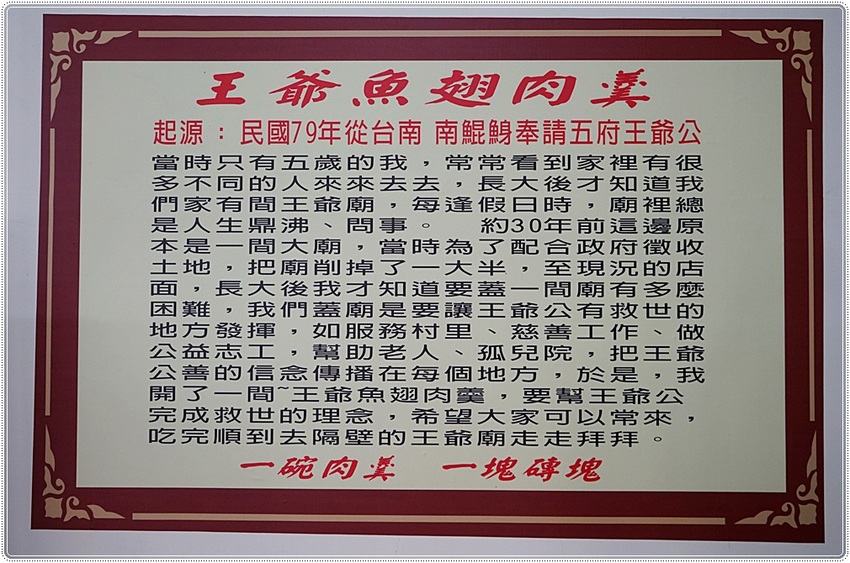 王爺魚翅肉羹
起源：民國79年從台南 南鯤鯓奉請五府王爺公
當時只有五歲的我，常常看到家裡有很
多不同的人來來去去，長大後才知道我
們家有間王爺廟，每逢假日時，廟裡總
是人生鼎沸、問事。 約30年前這邊原
本是一間大廟，當時為了配合政府徵收
土地，把廟削掉了一大半，至現況的店
面，長大後我才知道要蓋一間廟有多麼
困難，我們蓋廟是要讓王爺公有救世的
地方發揮，如服務村里、慈善工作、做
公益志工，幫助老人、孤兒院，把王爺
公善的信念傳播在每個地方，於是，我
開了一間~王爺魚翅肉羹，要幫王爺公
完成救世的理念，希望大家可以常來，
吃完順到去隔壁的王爺廟走走拜拜。
一碗肉羹 一塊磚塊